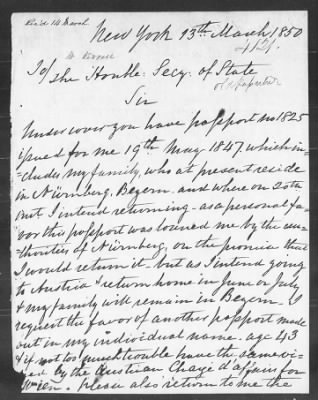 Rec'd 14 March.
New York 13th March 1850
To/ the Honble: Secy: of State
Sir
Under cover you have passport no 1825
issued for me 19th May 1847, which in-
cludes my family, who at present reside
in Nürnberg, Beyern. and where on 20th
inst I intend returning - as a personal fa-
vor this passport was loaned me by the au-
thorities of Nürnberg, on the promise that
I would return it - but as I intend going
to Austria & return home in June or July
& my family will remain in Beyern - I
request the favor of another passport made
out in my individual name - age 43
& if not too much trouble have the same vi-
sed by the Austrian Chargé d'affairs for
Wien - please also return to me the